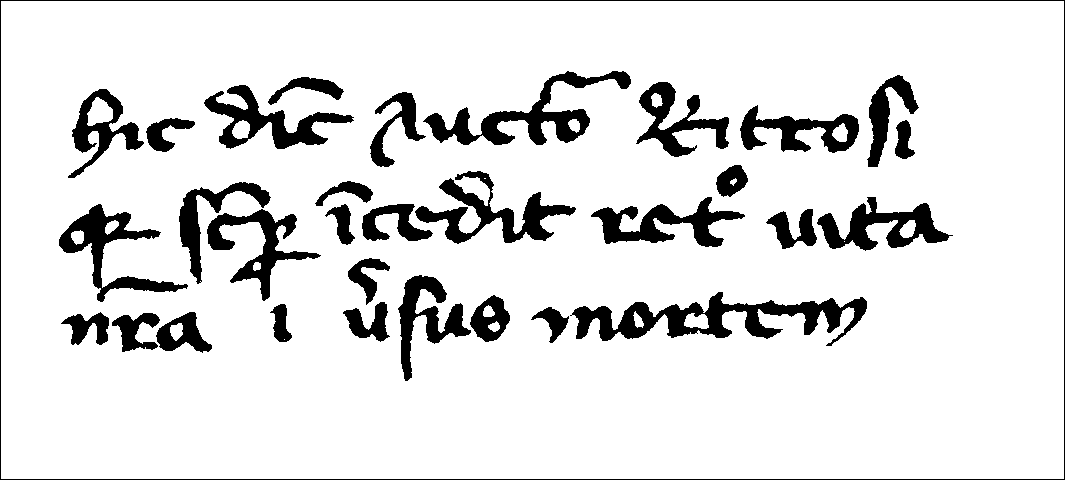 hic dic̄ Auctō Ritroſi
qꝛ ſc̄ꝑ īcedit retº uita
nr̄a i v̾ſus mortem